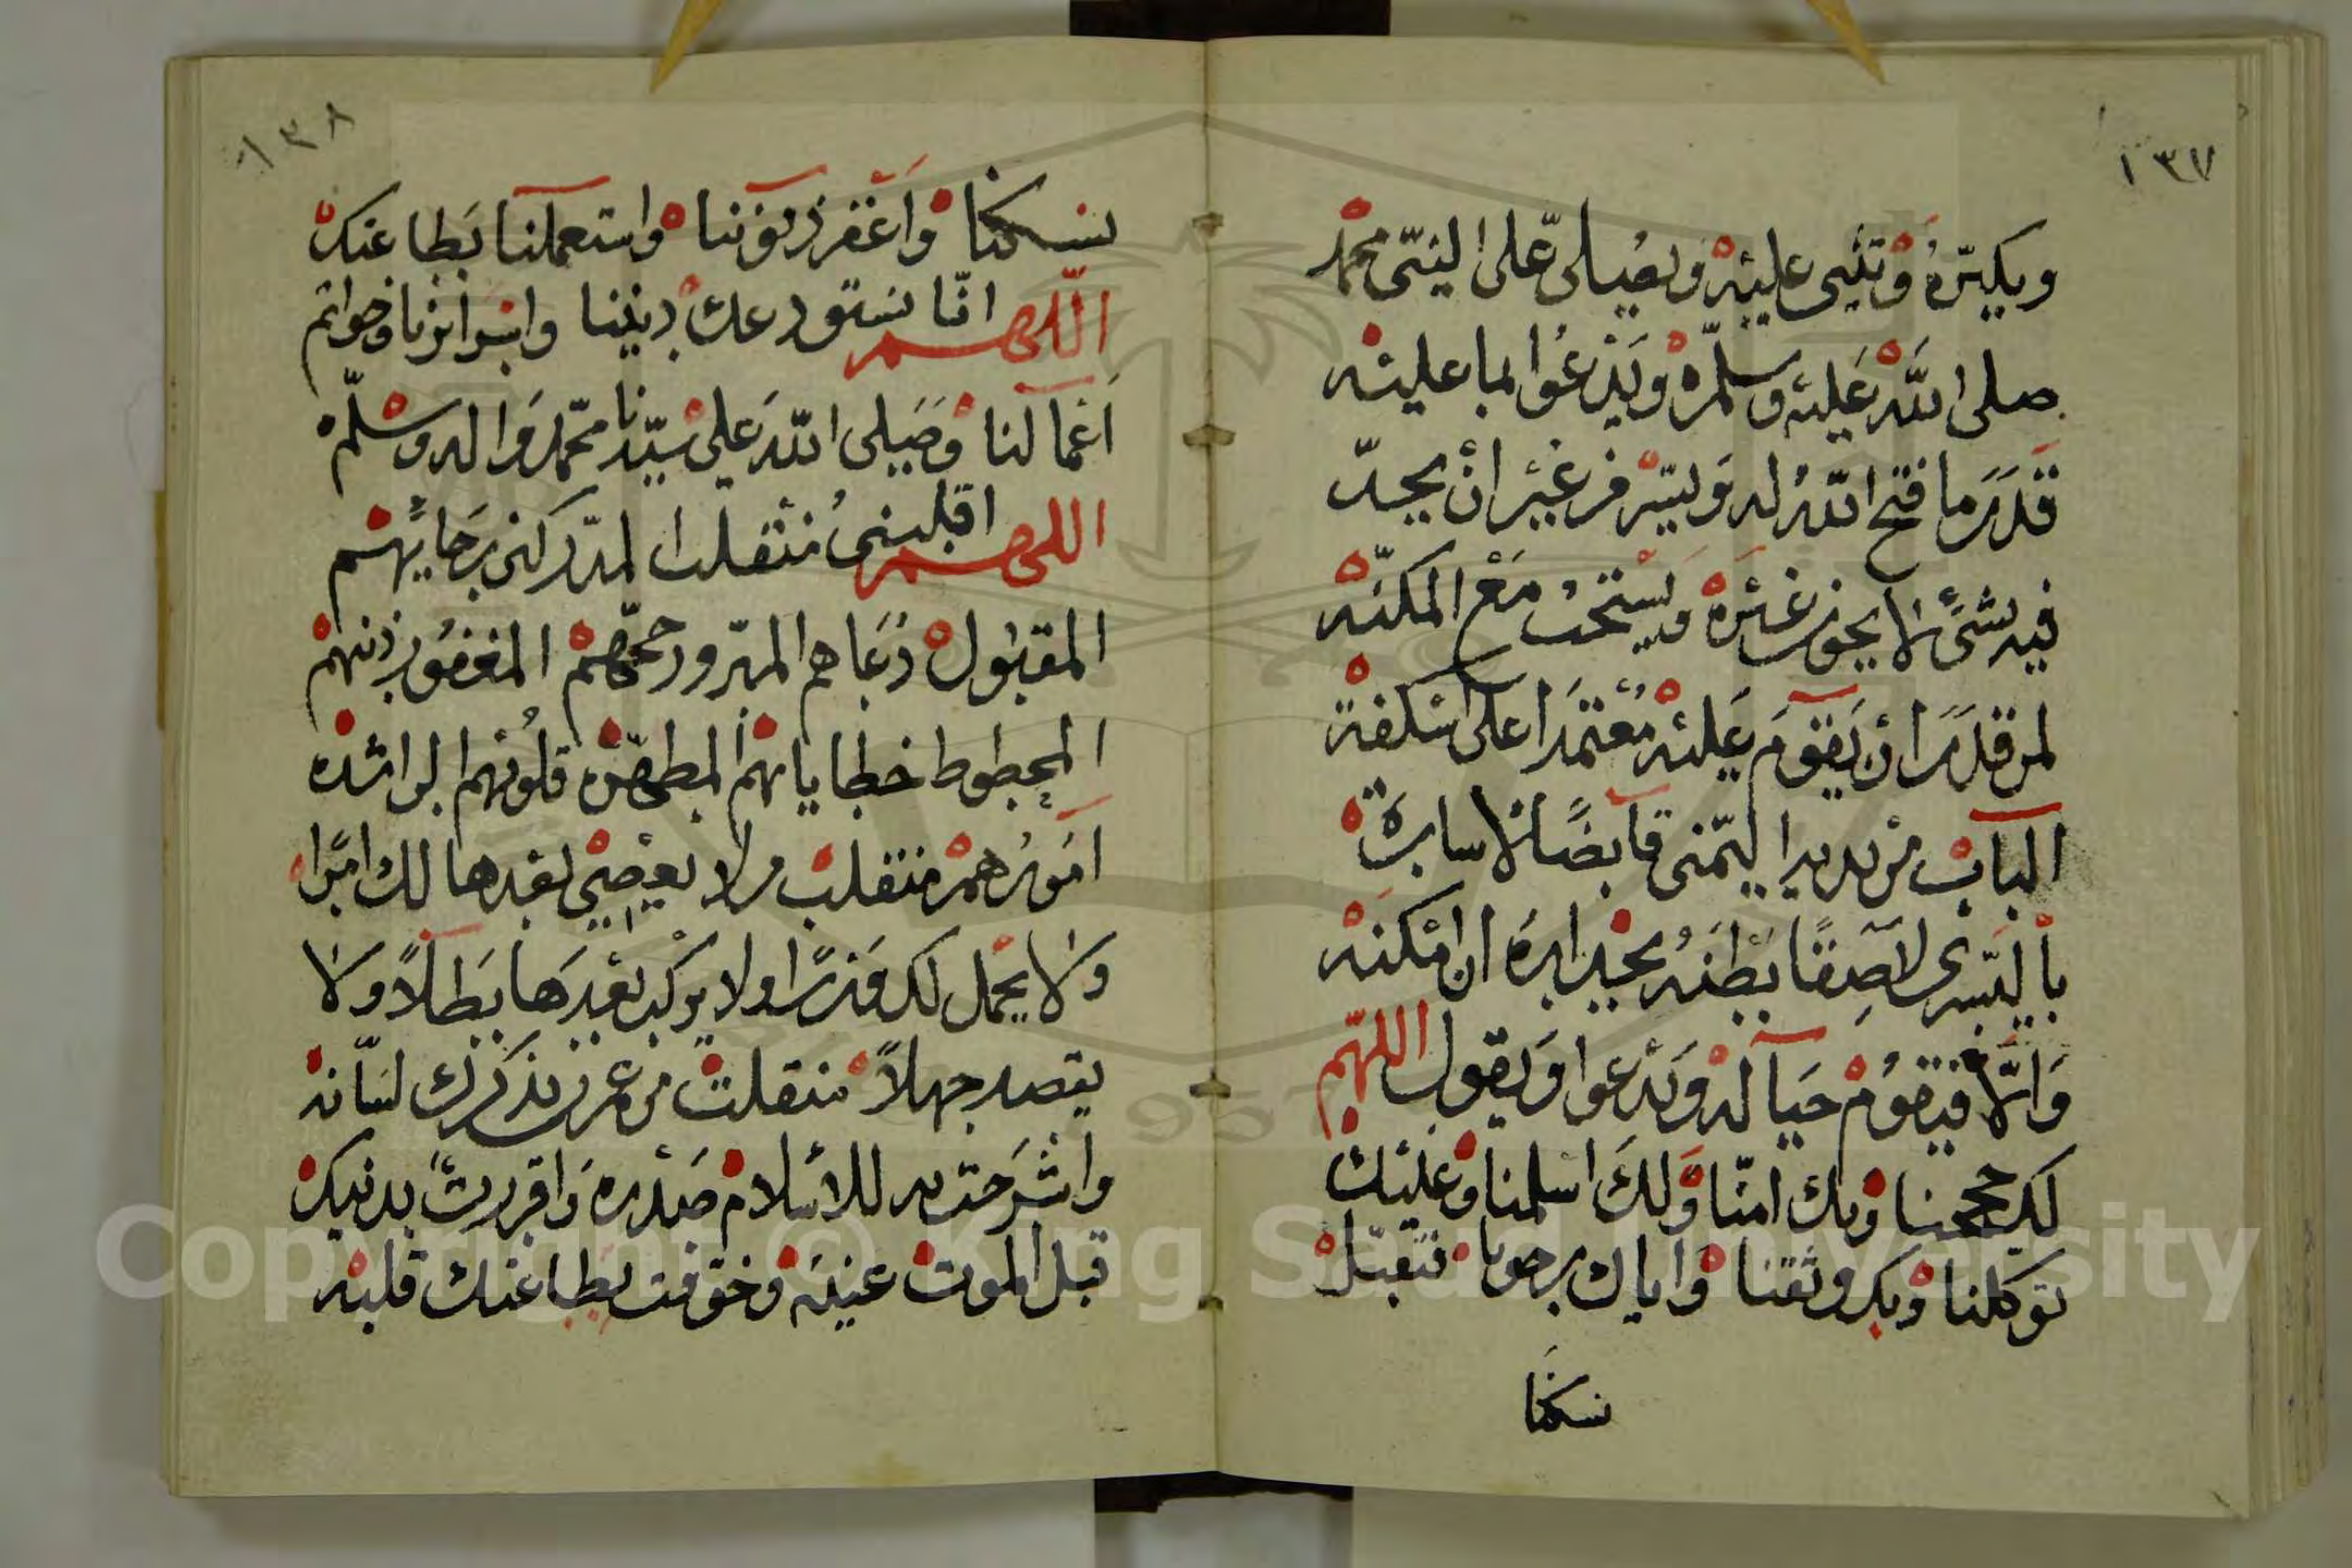 ١٣٧
ويكبّره وتثني عليه ويصلى على النبي محمد
صلى الله عليه وسلم ويدعوا بما عليه
قدر ما فتح الله له ويسر من غير ان يحد
فيه بشئ لا يجوز غيره ويستحب مع المكنة
لمن قدر ان يقوم عليه معتمدا على اسكفة
الباب من يده اليمنى قابضا لاستاره
باليسرى لاصقا بطنه بجداره ان امكنه
والا فيقوم حياله ويدعوا ويقول اللهم
لك حججنا وبك امنا ولك اسلمنا وعليك
توكلنا وبك وثقنا واياك رجونا فتقبل
نسكنا
١٣٨
نسكنا واغفر ذنوبنا واستعملنا بطاعتك
اللهم انا نستودعك ديننا وابرارنا وخواتم
اعمالنا وصلى الله على سيدنا محمد واله وسلم
اللهم اقلبني منقلب المدركين رجايهم
المقبول دعاهم المبرور حجهم المغفور ذنبهم
المحطوط خطاياهم المطهرة قلوبهم الراشدة
امورهم منقلب من لا يعصي بعدها لك امرا
ولا يحمل لك وزرا ولا يركب بعدها بطلا ولا
يقصد جهلا منقلب من عمرت بذكرك لسانه
واشرحت به للاسلام صدره واقررت بدنيك
قبل الموت عينه وخوفت بطاعتك قلبه
Copyright © King Saud University
1957